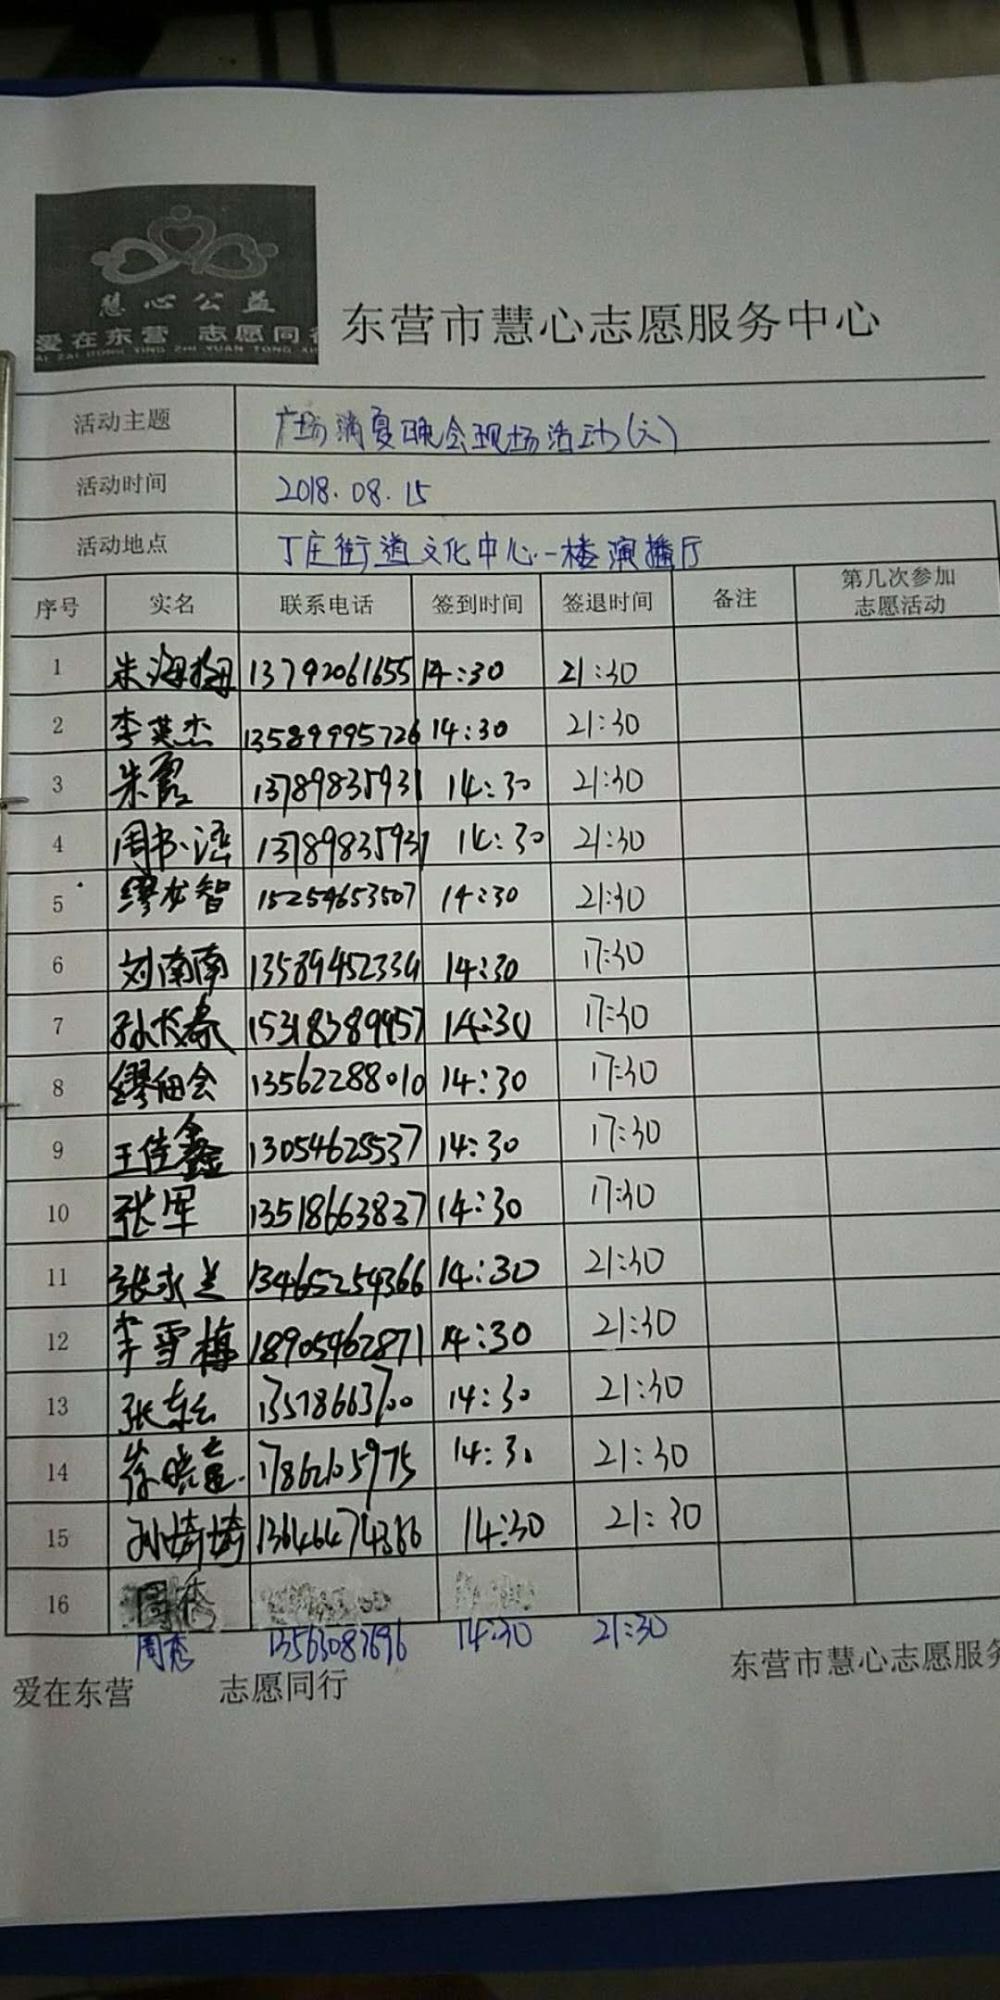 慧心公益
爱在东营 志愿同行
AI ZAI DONG YING ZHI YUAN TONG
东营市慧心志愿服务中心
活动主题 广场消夏晚会现场活动(六)
活动时间 2018.08.15
活动地点 丁庄街道文化中心一楼演播厅
序号 实名 联系电话 签到时间 签退时间 备注 第几次参加
志愿活动
1 朱海梅 13792061655 14:30 21:30
2 李英杰 13589995726 14:30 21:30
3 朱霞 13789835931 14:30 21:30
4 周书 13789835931 14:30 21:30
5 缪龙智 15254653507 14:30 21:30
6 刘南南 13589452334 14:30 17:30
7 孙 15318389957 14:30 17:30
8 缪细会 13562288010 14:30 17:30
9 王佳鑫 13054625537 14:30 17:30
10 张军 13518663837 14:30 17:30
11 张永兰 13465254366 14:30 21:30
12 李雪梅 18905462871 14:30 21:30
13 张 14:30 21:30
14 徐晓 17862605975 14:30 21:30
15 孙琦琦 14:30 21:30
16 周秀
周秀 13563087696 14:30 21:30
爱在东营 志愿同行 东营市慧心志愿服务